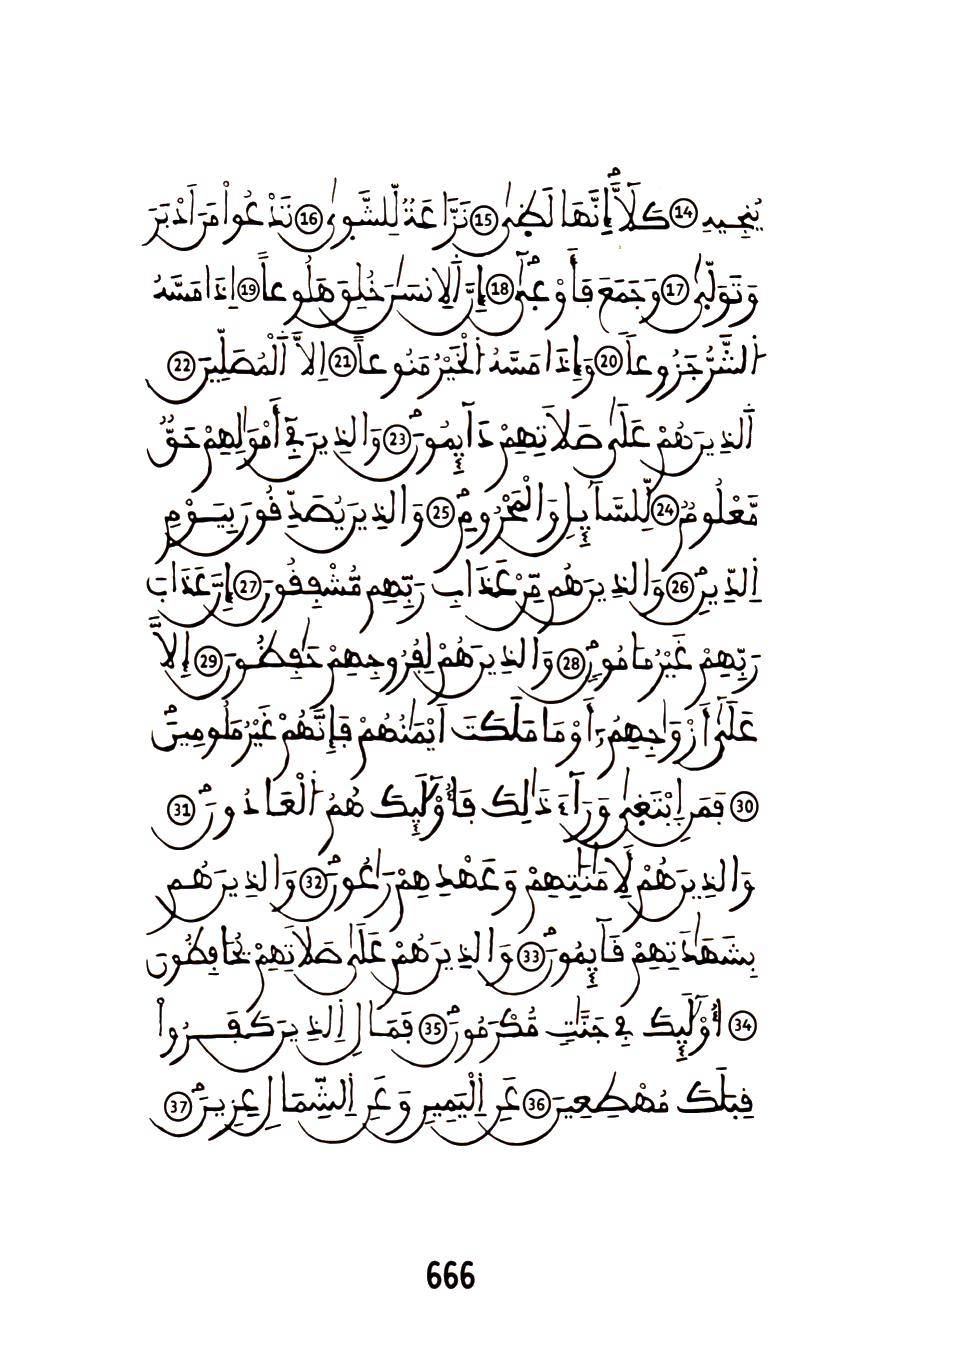 يُنجِيهِ ⑭ كَلَّآ إِنَّهَا لَظ۪ىٰ ⑮ نَزَّاعَةٌ لِّلشَّو۪ىٰ ⑯ تَدْعُواْ مَنَ اَدْبَرَ
وَتَوَلّ۪ىٰ ⑰ وَجَمَعَ فَأَوْع۪ىٰٓ ⑱ إِنَّ اَلِانسَٰنَ خُلِقَ هَلُوعاً ⑲ اِذَا مَسَّهُ
اُ۬لشَّرُّ جَزُوعاٗ ⑳ وَإِذَا مَسَّهُ اُ۬لْخَيْرُ مَنُوعاً ㉑ اِلَّا اَ۬لْمُصَلِّينَ ㉒
اَ۬لذِينَ هُمْ عَلَىٰ صَلَاتِهِمْ دَآئِمُونَ ㉓ وَالذِينَ فِےٓ أَمْوَٰلِهِمْ حَقّٞ
مَّعْلُومٞ ㉔ لِّلسَّآئِلِ وَالْمَحْرُومِ ㉕ وَالذِينَ يُصَدِّقُونَ بِيَوْمِ
اِ۬لدِّينِ ㉖ وَالذِينَ هُم مِّنْ عَذَابِ رَبِّهِم مُّشْفِقُونَ ㉗ إِنَّ عَذَابَ
رَبِّهِمْ غَيْرُ مَامُونٍ ㉘ وَالذِينَ هُمْ لِفُرُوجِهِمْ حَٰفِظُونَ ㉙ إِلَّا
عَلَىٰٓ أَزْوَٰجِهِمُۥٓ أَوْ مَا مَلَكَتَ اَيْمَٰنُهُمْ فَإِنَّهُمْ غَيْرُ مَلُومِينَ
㉚ فَمَنِ اِ۪بْتَغ۪ىٰ وَرَآءَ ذَٰلِكَ فَأُوْلَٰٓئِكَ هُمُ اُ۬لْعَادُونَ ㉛
وَالذِينَ هُمْ لِأَمَٰنَٰتِهِمْ وَعَهْدِهِمْ رَٰعُونَ ㉜ وَالذِينَ هُم
بِشَهَٰدَتِهِمْ قَآئِمُونَ ㉝ وَالذِينَ هُمْ عَلَىٰ صَلَاتِهِمْ يُحَافِظُونَ
㉞ أُوْلَٰٓئِكَ فِے جَنَّٰتٖ مُّكْرَمُونَ ㉟ فَمَالِ اِ۬لذِينَ كَفَرُواْ
قِبَلَكَ مُهْطِعِينَ ㊱ عَنِ اِ۬لْيَمِينِ وَعَنِ اِ۬لشِّمَالِ عِزِينَ ㊲
666